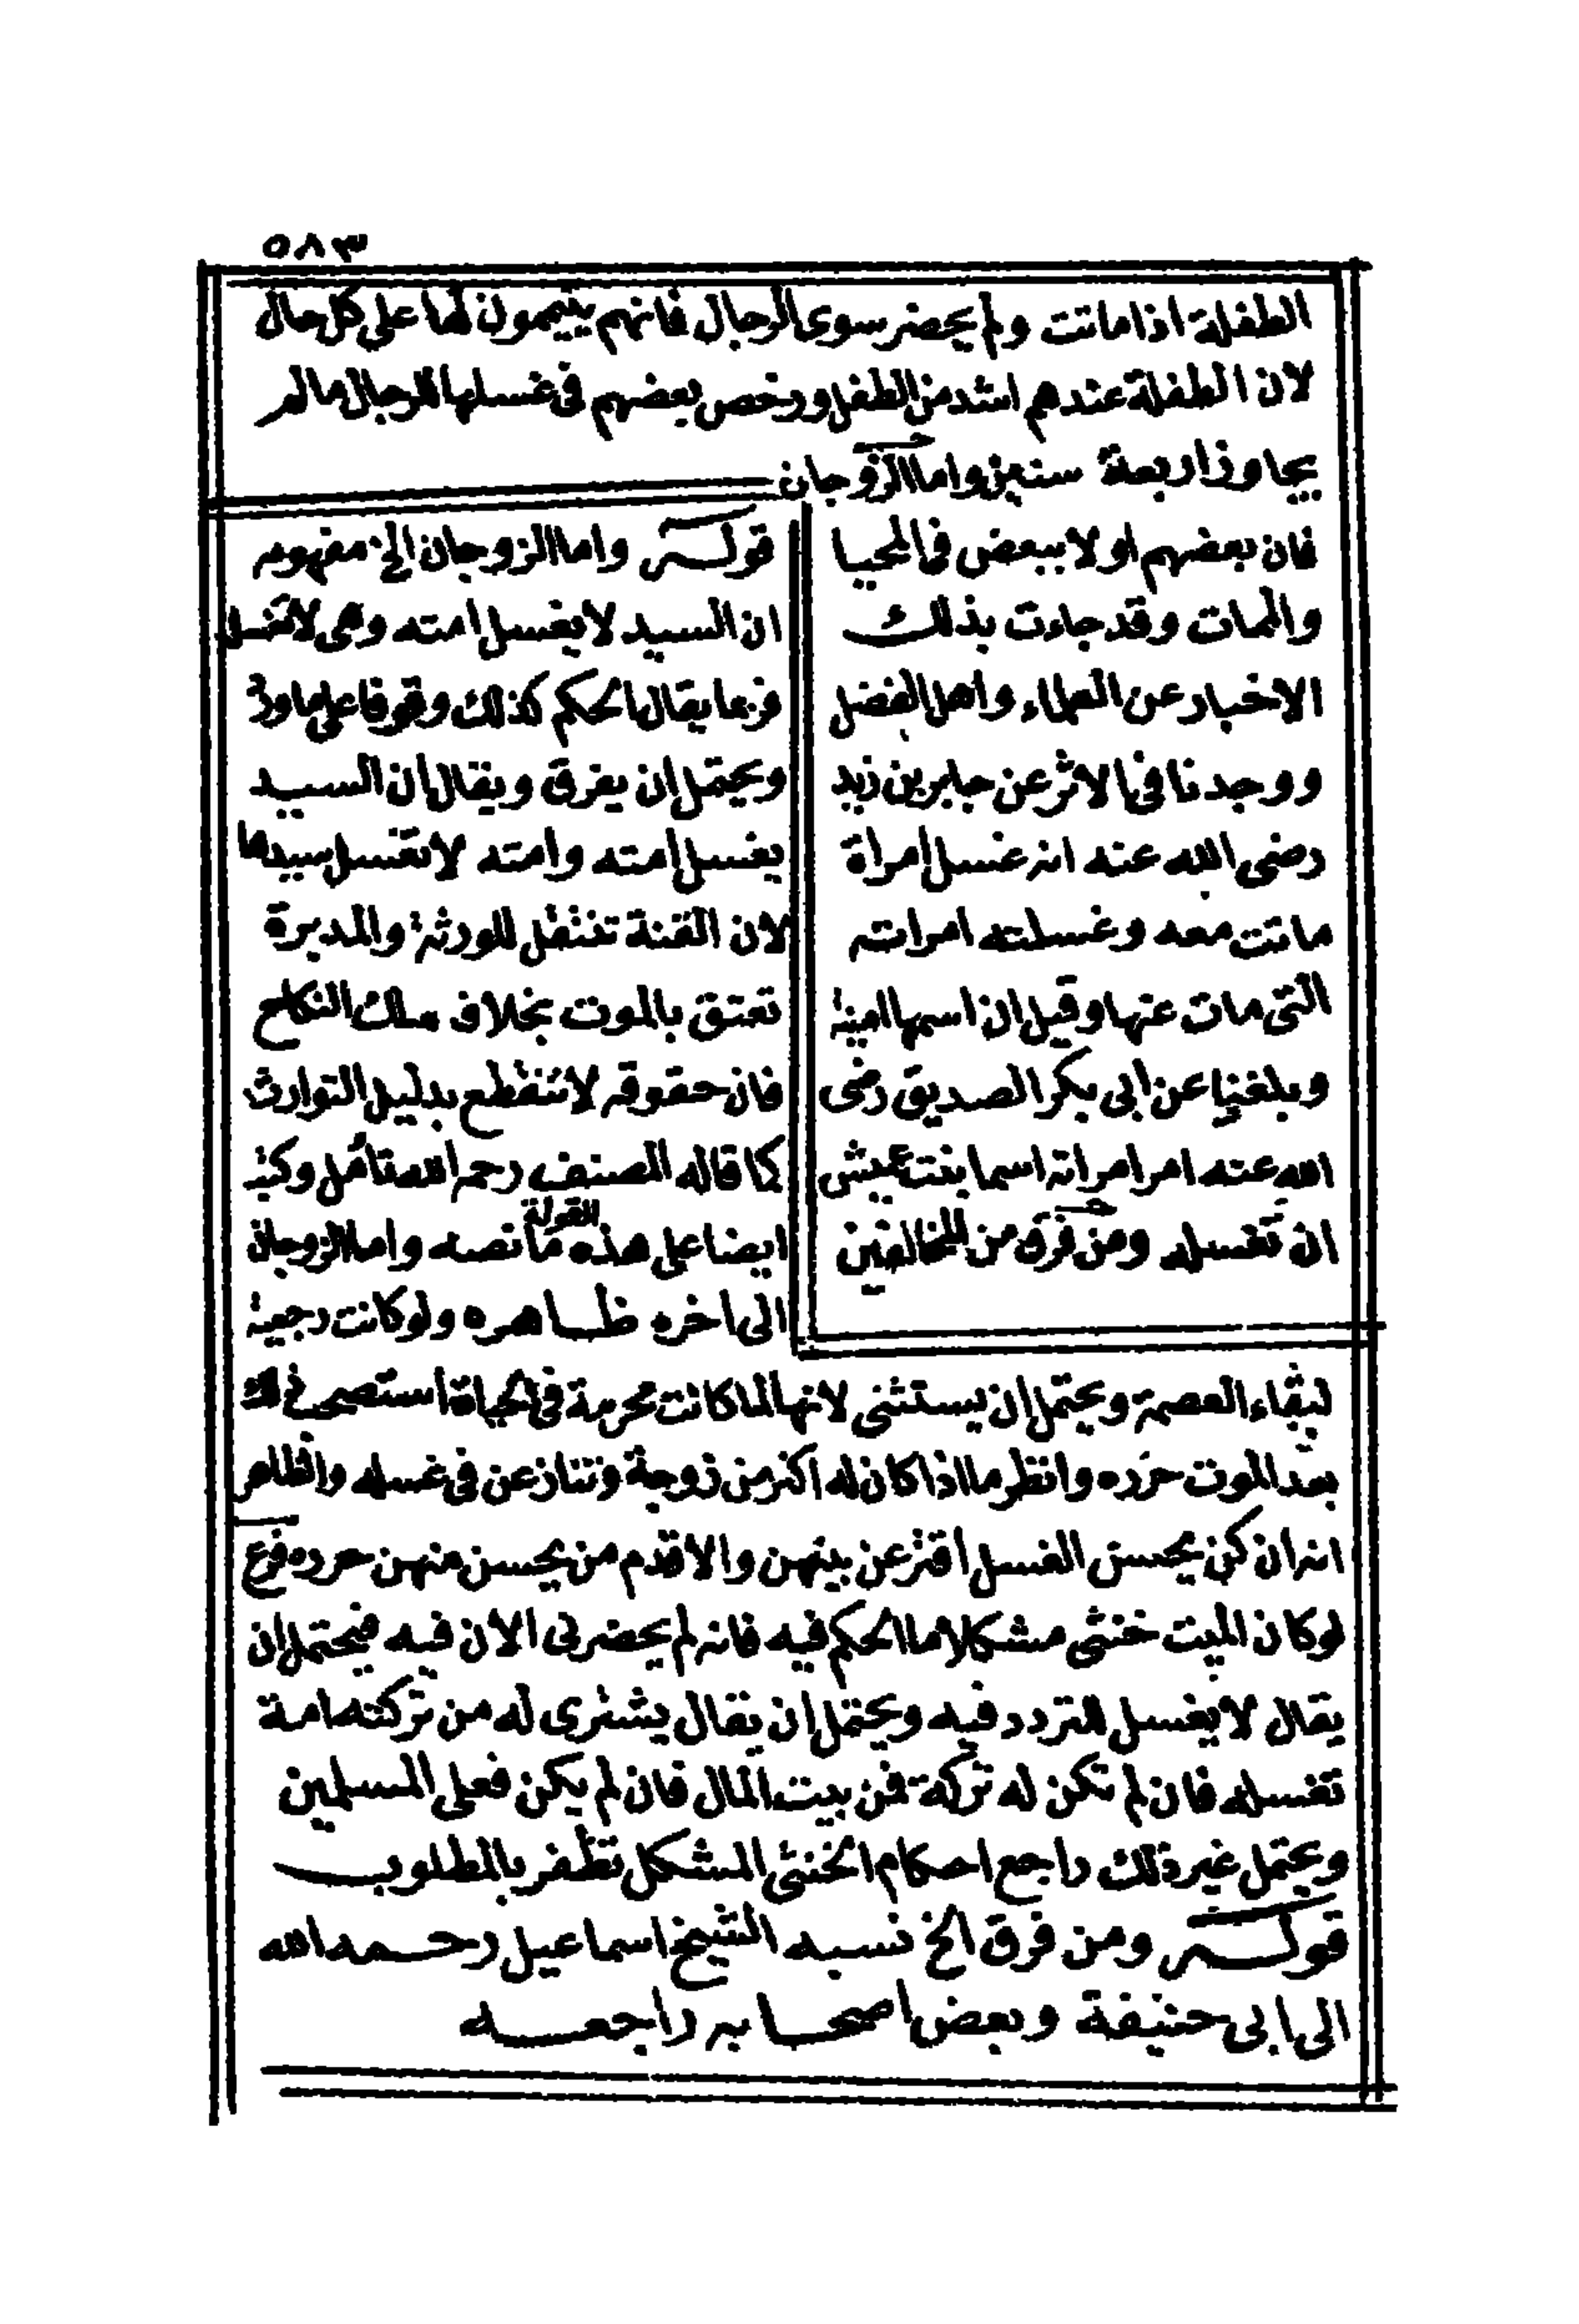 ٥٨٣
الطفلة اذا ماتت ولم يحضر سوى الرجال فانهم ييممون لها على كل حال
لان الطفلة عندهم اشد من الطفل ورخص بعضهم فى غسلها للرجال ما لم
يجاوز اربعة سنين واما الزوجان
فان بعضهم اولا ببعض فى المحيا
والممات وقد جاءت بذلك
الاخبار عن العلماء واهل الفضل
ووجدنا فى الاثر عن جابر بن زيد
رضى الله عنه انه غسل امراة
ماتت معه وغسلته امراته
التى مات عنها وقيل ان اسمها امينة
وبلغنا عن ابى بكر الصديق رضى
الله عنه امر امراته اسما بنت عميش
ان تغسله ومن فرق من المخالفين
قوله واما الزوجان الخ مفهومه
ان السيد لا يغسل امته وهى لا تغسل
فربما يقال الحكم كذلك وقوفا على ما ورد
ويحتمل ان يفرق ويقال ان السيد
يغسل امته وامته لا تغسل سيدها
لان القنة تنتقل للورثة والمدبرة
تعتق بالموت بخلاف ملك النكاح
فان حقوقه لا تنقطع بدليل التوارث
كما قاله المصنف رحمه الله تأمل وكتب
ايضا على هذه القولة ما نصه واما الزوجان
الى اخره ظاهره ولو كانت رجعية
لبقاء العصمة ويحتمل ان يستثنى لانها لما كانت محرمة فى الحياة استصحب ذلك
بعد الموت حرره وانظر ما اذا كان له اكثر من زوجة وتنازعن فى غسله والظاهر
انه ان كن يحسن الغسل اقترعن بينهن والا قدم من يحسن منهن حرره فرع
لو كان الميت خنثى مشكلا ما الحكم فيه فانه لم يحضر لى الان فيه فيحتمل ان
يقال لا يغسل للتردد فيه ويحتمل ان يقال يشترى له من تركته امة
تغسله فان لم تكن له تركة فمن بيت المال فان لم يكن فعلى المسلمين
ويحتمل غير ذلك راجع احكام الخنثى المشكل تظفر بالمطلوب
قوله ومن فرق الخ نسبه الشيخ اسماعيل رحمه الله
الى ابى حنيفة وبعض اصحابه راجعه